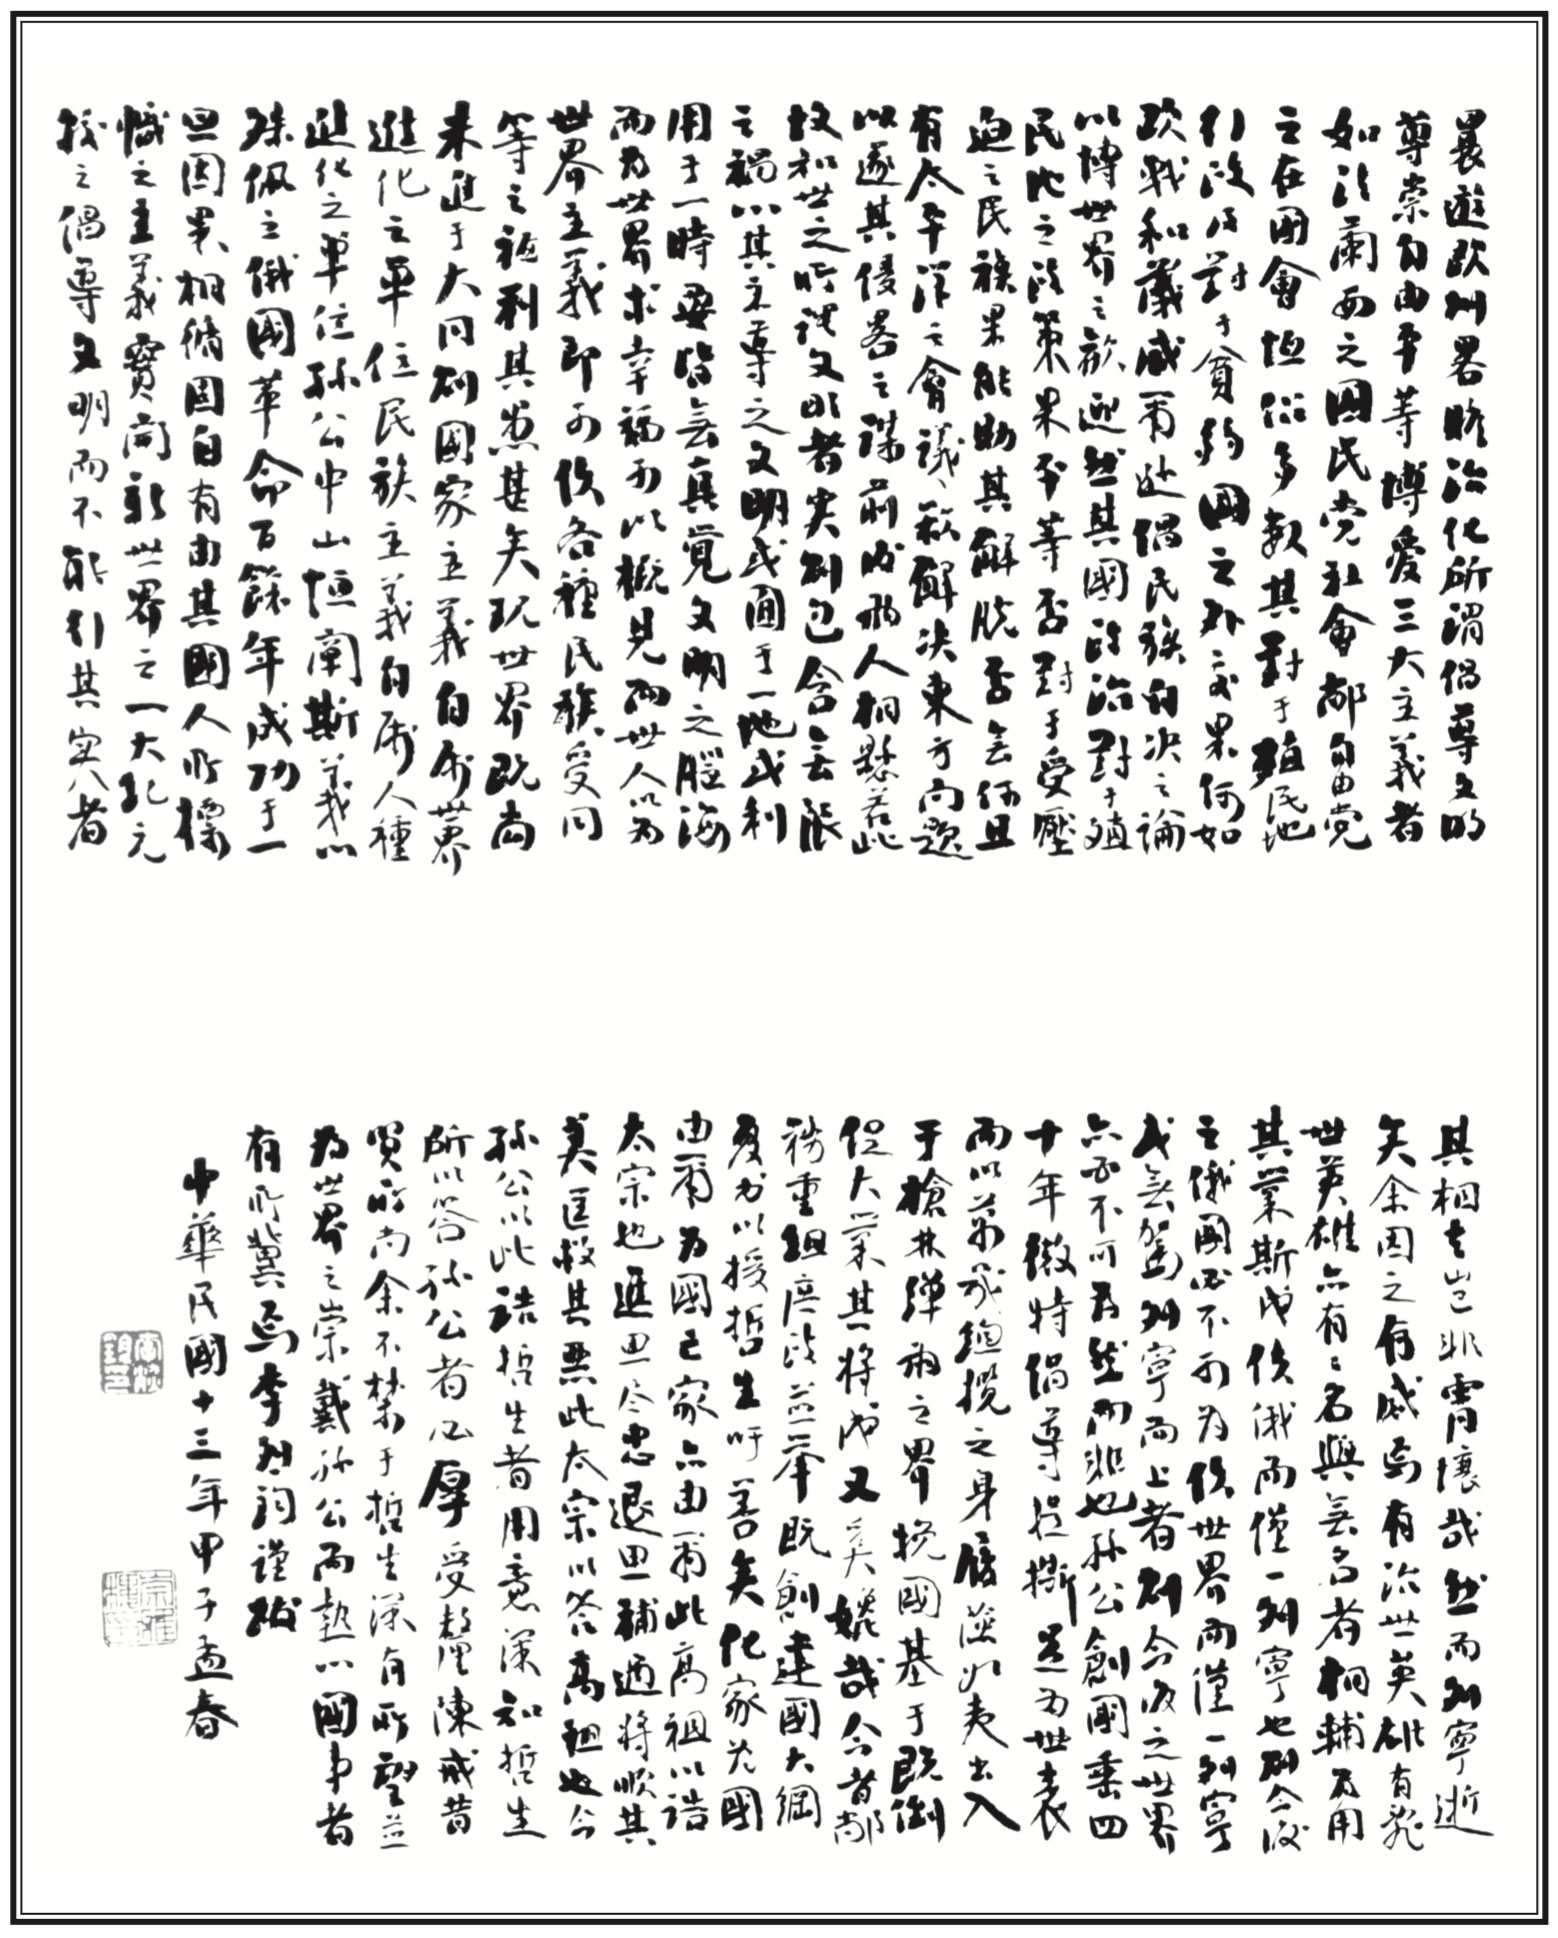 曩遊欧洲畧瞻治化所謂倡尊文明
尊崇自由平等博愛三大主義者
如法蘭西之國民党社會党自由党
之在國會恒占多数其對于殖民地
行政及對于貧弱國之外交果何如
欧战和議威爾逊倡民族自决之論
以博世界之歡迎然其國政治對于殖
民地之政策果平等否對于受壓
迫之民族果能助其解脱否無何且
有太平洋之會議藉解决東方问題
以遂其侵畧之謀前後兩人相懸若此
故知世之所謂文明者实則包含無限
之禍以其末導之文明或圖于一地或利
用于一時要皆無真覚文明之腦海
而为世界求幸福可以概見而世人以为
世界主義即可使各種民族受同
等之福利其惑甚矣玩世界既尚
未進于大同則國家主義自為世界
進化之單位民族主義自屬人種
進化之單位孫公中山恒闡斯義以
殊佩之俄國革命百餘年成功于一
旦因果相循固自有由其國人所標
幟之主義實開新世界之一大紀元
較之倡尊文明而不能行其实者
其相去豈非霄壤哉然而列寧逝
矣余因之有感焉有治世英雄有乱
世英雄亦有有名與無名者相輔为用
其業斯成使俄而僅一列寧也則今後
之俄國必不可为使世界而僅一列寧
或無駕列寧而上者則今後之世界
亦必不可为然而非也孫公創國垂四
十年微特倡導提撕足为世表
而以萬幾總攬之身履險如夷出入
于槍林弹雨之界挽國基于既倒
促大業其将成又奚媿哉今者部
務重组庶政並举既創建國大綱
复书以授哲生吁善矣化家为國
由爾为國亡家亦由爾此高祖以誥
太宗也進思尽忠退思補過将順其
美匡救其惡此太宗以答高祖也今
孫公以此誥哲生者用意深知哲生
所以答孫公者必厚受釐陳戒昔
贤所尚余不禁于哲生深有所望並
为世界之崇戴孫公而熱心國事者
有所冀焉李烈钧謹跋
中華民國十三年甲子孟春